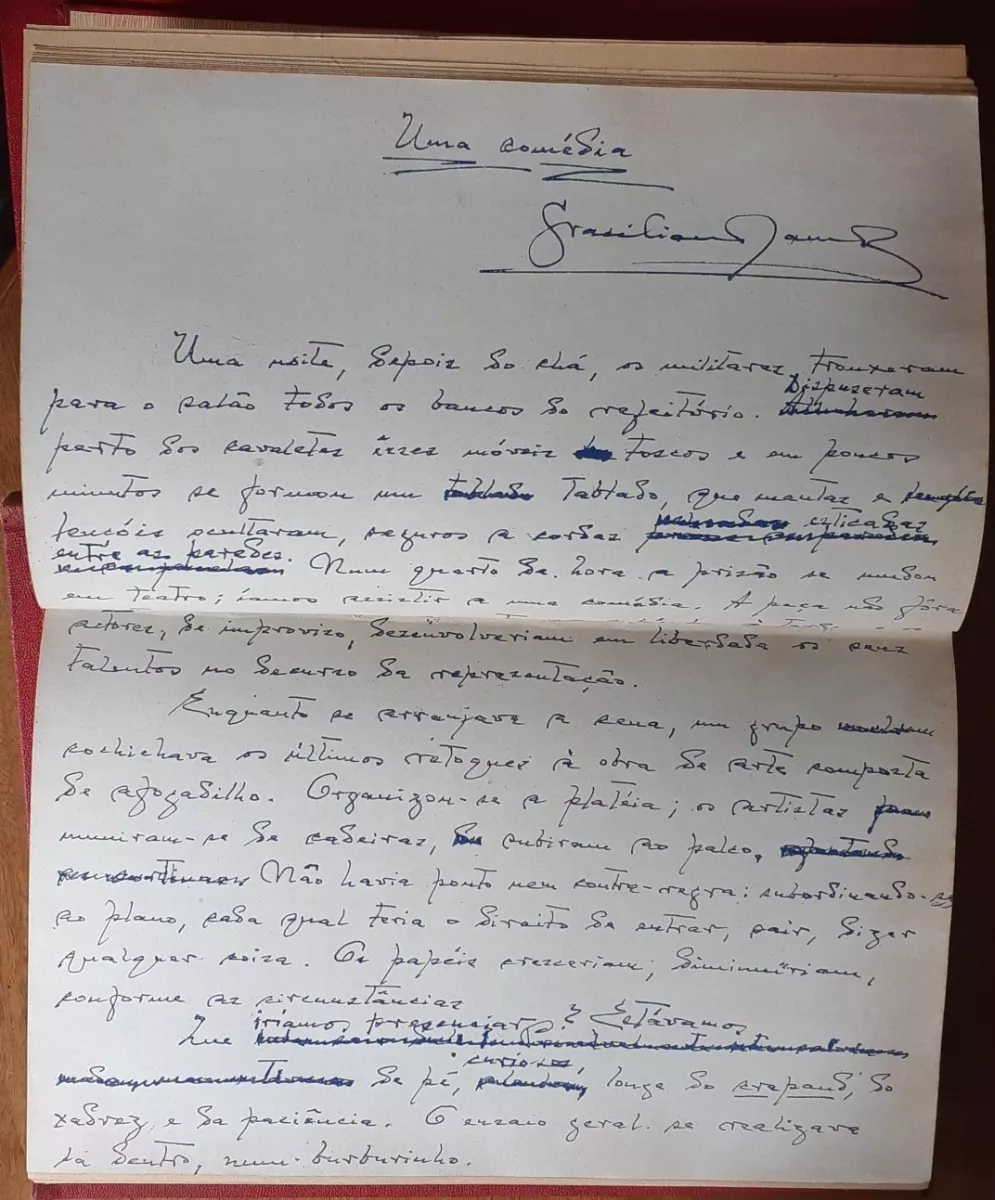 Uma comédia
Graciliano Ramos
Uma noite, depois do chá, os militares trouxeram
Dispuseram
para o salão todos os bancos do refeitório.
perto dos cavaletes êsses móveis toscos e em poucos
minutos se formou um tablado, que mantas e
lençóis ocultaram, seguros a cordas esticadas
entre as paredes. Num quarto de hora a prisão se mudou
em teatro; íamos assistir a uma comédia. A peça não fôra
atores, de improviso, desenvolveriam em liberdade os seus
talentos no decurso da representação.
Enquanto se arranjava a cena, um grupo
cochichava os últimos retoques à obra de arte composta
de afogadilho. Organizou-se a platéia; os artistas
muniram-se de cadeiras, subiram ao palco.
Não havia ponto nem contra-regra: subordinando-se
ao plano, cada qual teria o direito de entrar, sair, dizer
qualquer coisa. Os papéis cresceriam, diminuïriam,
conforme as circunstâncias
iríamos presenciar? Estávamos
Que
curiosos,
de pé, longe do crapaud, do
xadrez e da paciência. O ensaio geral se realizava
lá dentro, num burburinho.